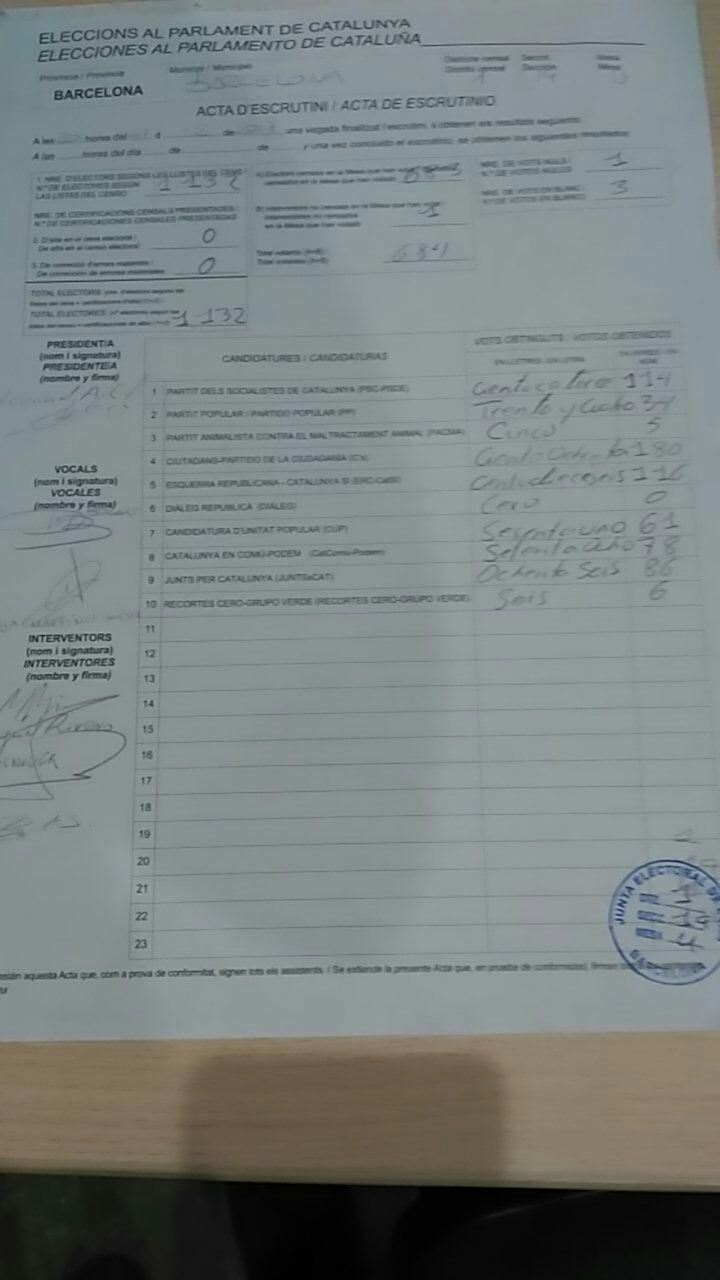 ELECCIONS AL PARLAMENT DE CATALUNYA
ELECCIONES AL PARLAMENTO DE CATALUÑA
Provincia / Provincia
Municipi / Municipio
Districte censal
Distrito censal
Secció
Sección
Mesa
Mesa
BARCELONA
BARCELONA
ACTA D'ESCRUTINI / ACTA DE ESCRUTINIO
A les hores del d de una vegada finalitzat l'escrutini, s'obtenen els resultats següents:
A las horas del día de de y una vez concluido el escrutinio, se obtienen los siguientes resultados:
1. NRE. D'ELECTORS SEGONS LES LLISTES DEL CENS
Nº DE ELECTORES SEGÚN
LAS LISTAS DEL CENSO
1 132
NRE. DE CERTIFICACIONS CENSALS PRESENTADES /
Nº DE CERTIFICACIONES CENSALES PRESENTADAS
2. D'alta en el cens electoral /
De alta en el censo electoral
0
3. De correcció d'errors materials /
De corrección de errores materiales
0
TOTAL ELECTORS
TOTAL ELECTORES
1 132
A) Electors censats en la Mesa que han votat
censados en la Mesa que han votado
683
B) Interventors no censats en la Mesa que han votat
Interventores no censados
en la Mesa que han votado
1
Total votants (A+B)
Total votantes (A+B)
684
NRE. DE VOTS NULS
Nº DE VOTOS NULOS
1
NRE. DE VOTS EN BLANC
Nº DE VOTOS EN BLANCO
3
PRESIDENT/A
(nom i signatura)
PRESIDENTE/A
(nombre y firma)
VOCALS
(nom i signatura)
VOCALES
(nombre y firma)
INTERVENTORS
(nom i signatura)
INTERVENTORES
(nombre y firma)
CANDIDATURES / CANDIDATURAS
VOTS OBTINGUTS / VOTOS OBTENIDOS
1 PARTIT DELS SOCIALISTES DE CATALUNYA (PSC-PSOE) Ciento catorce 114
2 PARTIT POPULAR / PARTIDO POPULAR (PP) Treinta y Cuatro 34
3 PARTIT ANIMALISTA CONTRA EL MALTRACTAMENT ANIMAL (PACMA) Cinco 5
4 CIUTADANS-PARTIDO DE LA CIUDADANÍA (C's) Ciento Ochenta 180
5 ESQUERRA REPUBLICANA - CATALUNYA SÍ (ERC-CatSí) Ciento dieceseis 116
6 DIÀLEG REPÚBLICA (DIÀLEG) Cero 0
7 CANDIDATURA D'UNITAT POPULAR (CUP) Sesenta uno 61
8 CATALUNYA EN COMÚ-PODEM (CatComú-Podem) Setenta Ocho 78
9 JUNTS PER CATALUNYA (JUNTSxCAT) Ochenta Seis 86
10 RECORTES CERO-GRUPO VERDE (RECORTES CERO-GRUPO VERDE) Seis 6
11
12
13
14
15
16
17
18
19
20
21
22
23
JUNTA ELECTORAL DE
BARCELONA
aquesta Acta que, com a prova de conformitat, signen tots els assistents. / Se extiende la presente Acta que, en prueba de conformidad, firman